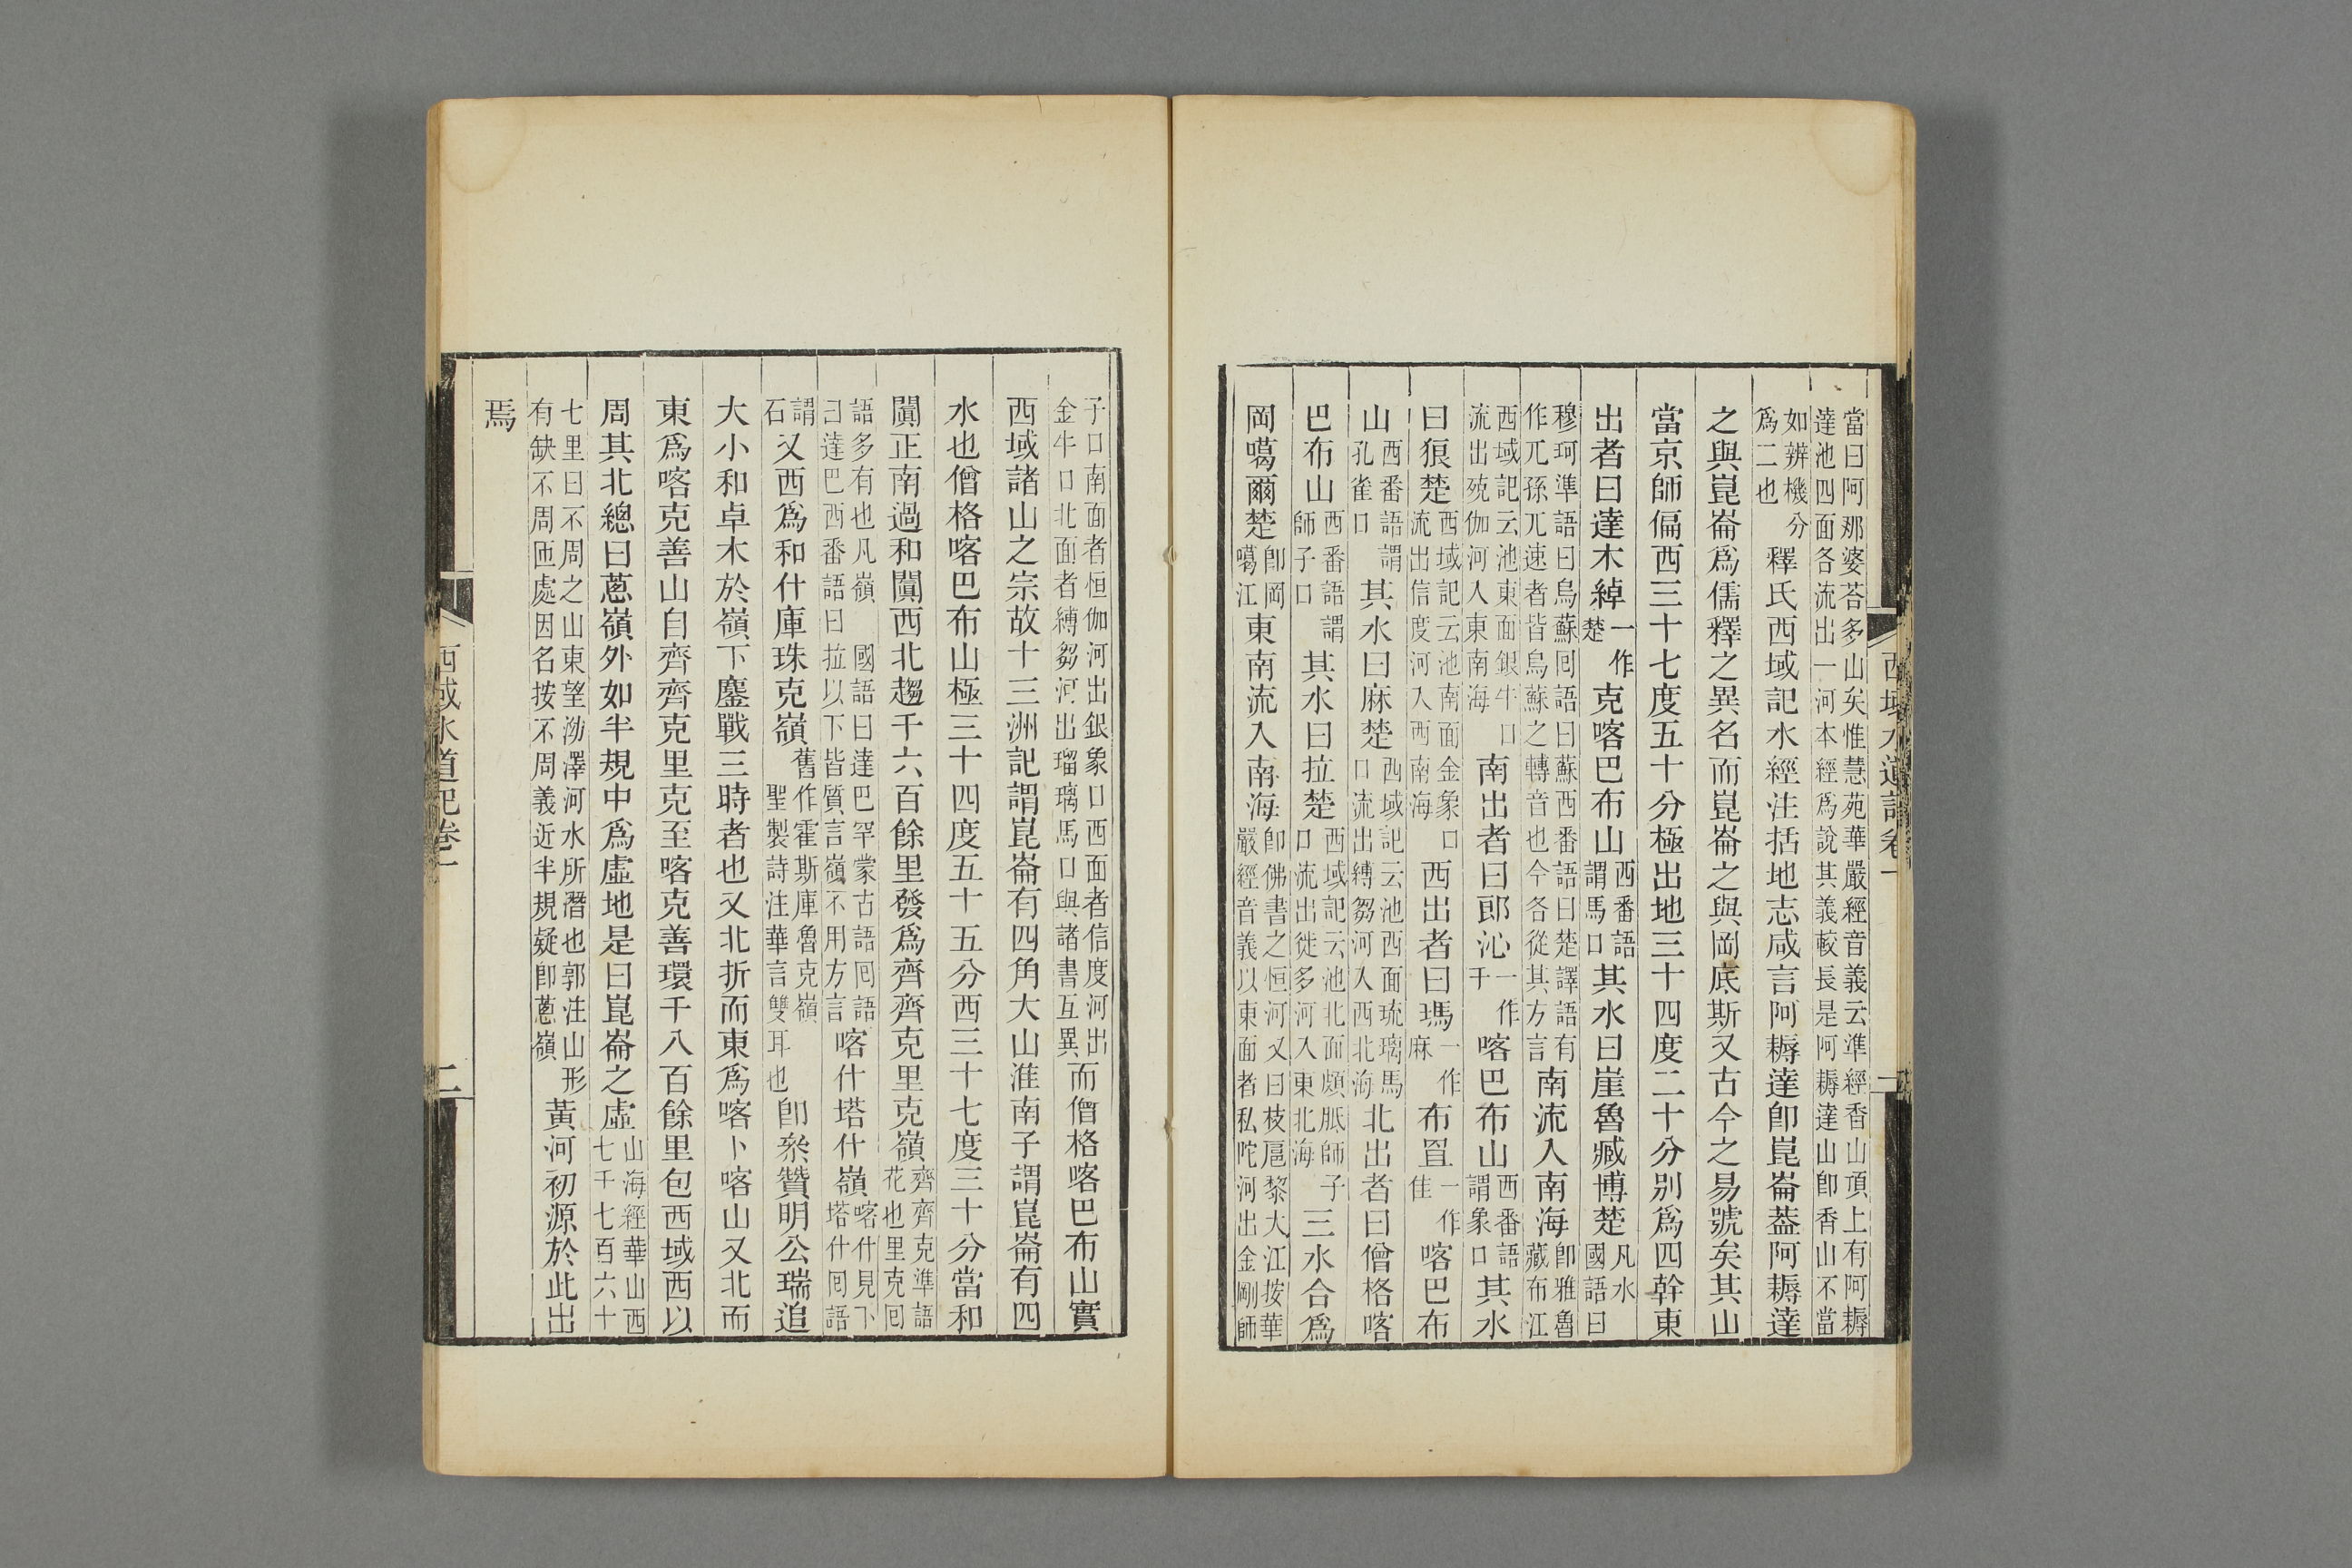 西域水道記卷一
一
當曰阿那婆荅多山矣惟慧苑華嚴經音義云準經香山頂上有阿耨達池四面各流出一河本經爲說其義較長是阿耨達山卽香山不當
如辨機分爲二也釋氏西域記水經注括地志咸言阿耨達卽崑崙葢阿耨達
之與崑崙爲儒釋之異名而崑崙之與岡底斯又古今之易號矣其山
當京師偏西三十七度五十分極出地三十四度二十分别爲四幹東
出者曰達木綽一作楚克喀巴布山西番語謂馬口其水曰崖魯臧博楚凡水國語曰
穆珂準語曰烏蘇囘語曰蘇西番語曰楚譯語有作兀孫兀速者皆烏蘇之轉音也今各從其方言南流入南海卽雅魯藏布江
西域記云池東面銀牛口流出殑伽河入東南海南出者曰郎沁一作千喀巴布山西番語謂象口其水
曰狼楚西域記云池南面金象口流出信度河入西南海西出者曰瑪一作麻布置一作佳喀巴布
山西番語謂孔雀口其水曰麻楚西域記云池西面琉璃馬口流出縛芻河入西北海北出者曰僧格喀
巴布山西番語謂師子口其水曰拉楚西域記云池北面頗胝師子口流出徙多河入東北海三水合爲
岡噶爾楚卽岡噶江東南流入南海卽佛書之恒河又曰枝扈黎大江按華嚴經音義以東面者私陀河出金剛師
子口南面者恒伽河出銀象口西面者信度河出金牛口北面者縛芻河出瑠璃馬口與諸書互異而僧格喀巴布山實
西域諸山之宗故十三洲記謂崑崙有四角大山淮南子謂崑崙有四
水也僧格喀巴布山極三十四度五十五分西三十七度三十分當和
闐正南過和闐西北趨千六百餘里發爲齊齊克里克嶺齊齊克準語花也里克囘
語多有也凡嶺國語曰達巴罕蒙古語囘語曰達巴西番語曰拉以下皆質言嶺不用方言喀什塔什嶺喀什見下塔什囘語
謂石又西爲和什庫珠克嶺舊作霍斯庫魯克嶺聖製詩注華言雙耳也卽叅贊明公瑞追
大小和卓木於嶺下鏖戰三時者也又北折而東爲喀卜喀山又北而
東爲喀克善山自齊齊克里克至喀克善環千八百餘里包西域西以
周其北總曰蔥嶺外如半規中爲虛地是曰崑崙之虛山海經華山西七千七百六十
七里曰不周之山東望泑澤河水所潛也郭注山形有缺不周匝處因名按不周義近半規疑卽蔥嶺黃河初源於此出
焉
西域水道記卷一
二